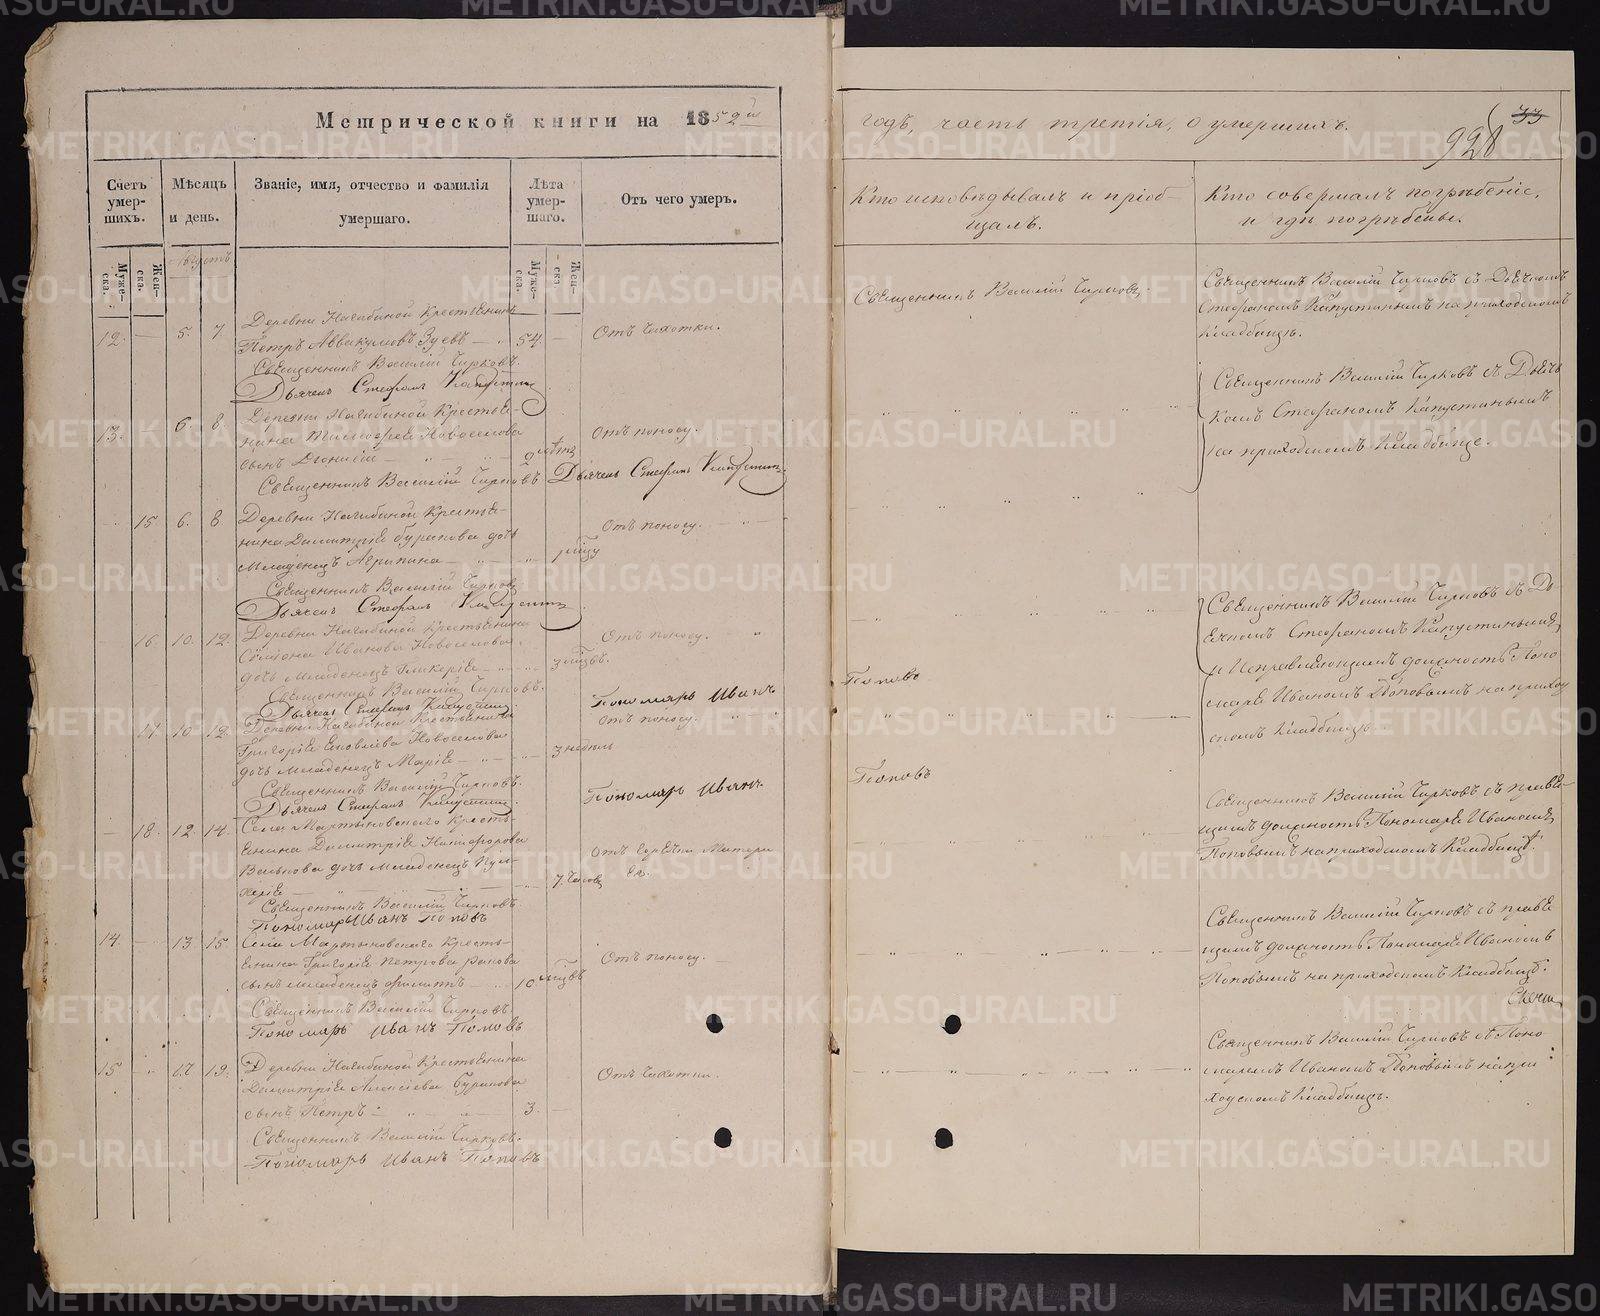 Метрической книги на 1852й
годъ, часть третія, о умершихъ.
928
33
Счетъ умер-
шихъ.
Мѣсяцъ
и день.
Званіе, имя, отчество и фамилія
умершаго.
Лѣта
умер-
шаго.
Отъ чего умеръ.
Кто исповѣдывалъ и пріоб-
щалъ.
Кто совершалъ погрѣбеніе,
и гдѣ погрѣбены.
Муже-
ска.
Жен-
ска.
Августъ
Муже-
ска.
Жен-
ска.
Деревни Нагибиной Крестьянинъ
12. — 5. 7. Петръ Аввакумовъ Зуевъ — 54. — Отъ Чихотки.
Священникъ Василій Чирковъ.
Дьячекъ Стефанъ Капустинъ
Священникъ Василій Чирковъ.
Священникъ Василій Чирковъ съ Дьячкомъ
Стефаномъ Капустинымъ на приходскомъ
Кладбищѣ.
13. 6. 8. Деревни Нагибиной Крестья-
нина Новоселова
сынъ Діонисій
Отъ поносу.
Священникъ Василій Чирковъ Дьячекъ Стефанъ Капустинъ
Священникъ Василій Чирковъ съ Дьяч
комъ Стефаномъ Капустинымъ
на приходскомъ Кладбище.
15 6. 8 Деревни Нагибиной Крестья-
нина Димитрія Буракова дочь
Младенецъ Агрипина
Отъ поносу.
Священникъ Василій Чирковъ
Дьячекъ Стефанъ Капустинъ
16. 10. 12. Деревни Нагибиной Крестьянина
Симіона Иванова Новоселова
дочь Младенецъ Гликерія
3 мѣсцъ.
Отъ поносу.
Священникъ Василій Чирковъ.
Дьячекъ Стефанъ Капустинъ
Пономарь Иванъ
Поповъ
Священникъ Василій Чирковъ съ Дь
ячкомъ Стефаномъ Капустинымъ
и Исправляющимъ должность Поно
маря Иваномъ Поповымъ на приход
скомъ Кладбищѣ
17 10 12 Деревни Нагибиной Крестьянина
Григорія Яковлева Новоселова
дочь Младенецъ Марія
3 недѣль
Отъ поносу.
Священникъ Василій Чирковъ.
Дьячекъ Стефанъ Капустинъ.
Пономарь Иванъ
Поповъ
— 18. 12. 14. Села Мартыновского Кресть-
янина Димитрія Никифорова
дочь Младенецъ Пуль-
херія
7. Часовъ
Отъ Матери
Священникъ Василій Чирковъ.
Пономарь Иванъ Поповъ
Священникъ Василій Чирковъ съ правя-
щимъ должность Пономаря Иваномъ
Поповымъ на приходскомъ Кладбищѣ.
14. — 13. 15. Села Мартыновского Кресть-
янина Григорія Петрова
сынъ Младенецъ
10 мѣсцъ
Отъ поносу.
Священникъ Василій Чирковъ
Пономарь Иванъ Поповъ
Священникъ Василій Чирковъ съ правя
щимъ должность Пономаря Иваномъ
Поповымъ на приходскомъ Кладбищѣ.
15 17. 19. Деревни Нагибиной Крестьянина
Димитрія Алексіева Буракова
сынъ Петръ 3. —
Отъ Чихотки.
Священникъ Василій Чирковъ.
Пономарь Иванъ Поповъ
Священникъ Василій Чирковъ съ Поно
маремъ Иваномъ Поповымъ на при
ходскомъ Кладбищѣ.
METRIKI.GASO-URAL.RU